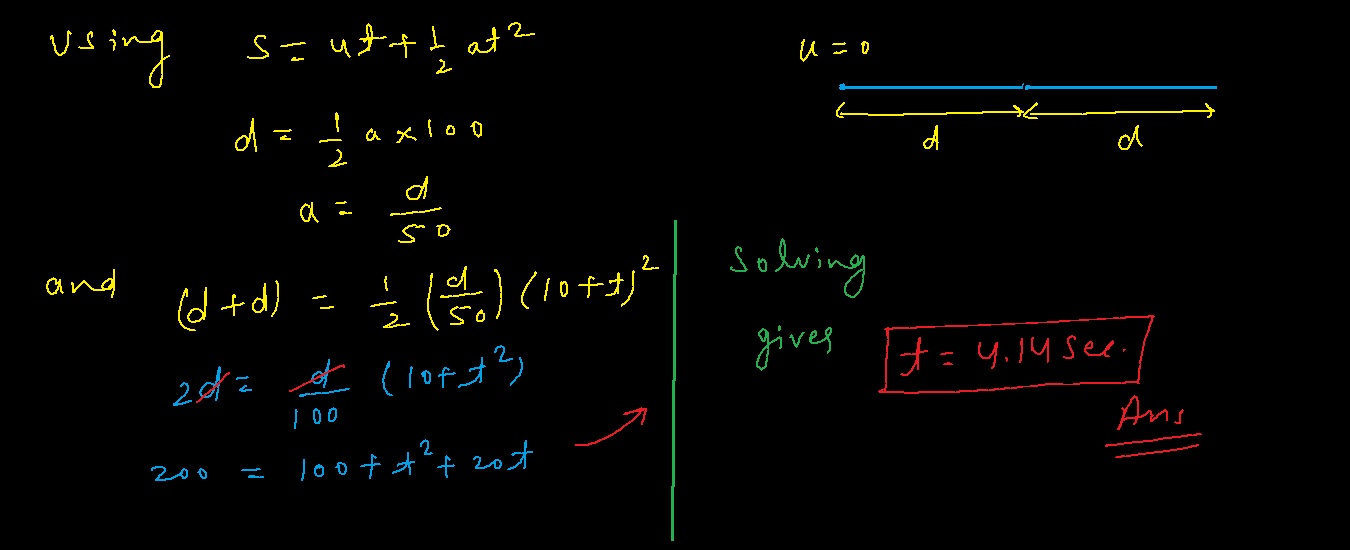 Using S = ut + 1/2 at²
d = 1/2 a × 100
a = d/50
and (d + d) = 1/2 (d/50) (10 + t)²
2d = d/100 (10 + t²)
200 = 100 + t² + 20t
u = 0
d d
Solving
gives t = 4.14 Sec.
Ans